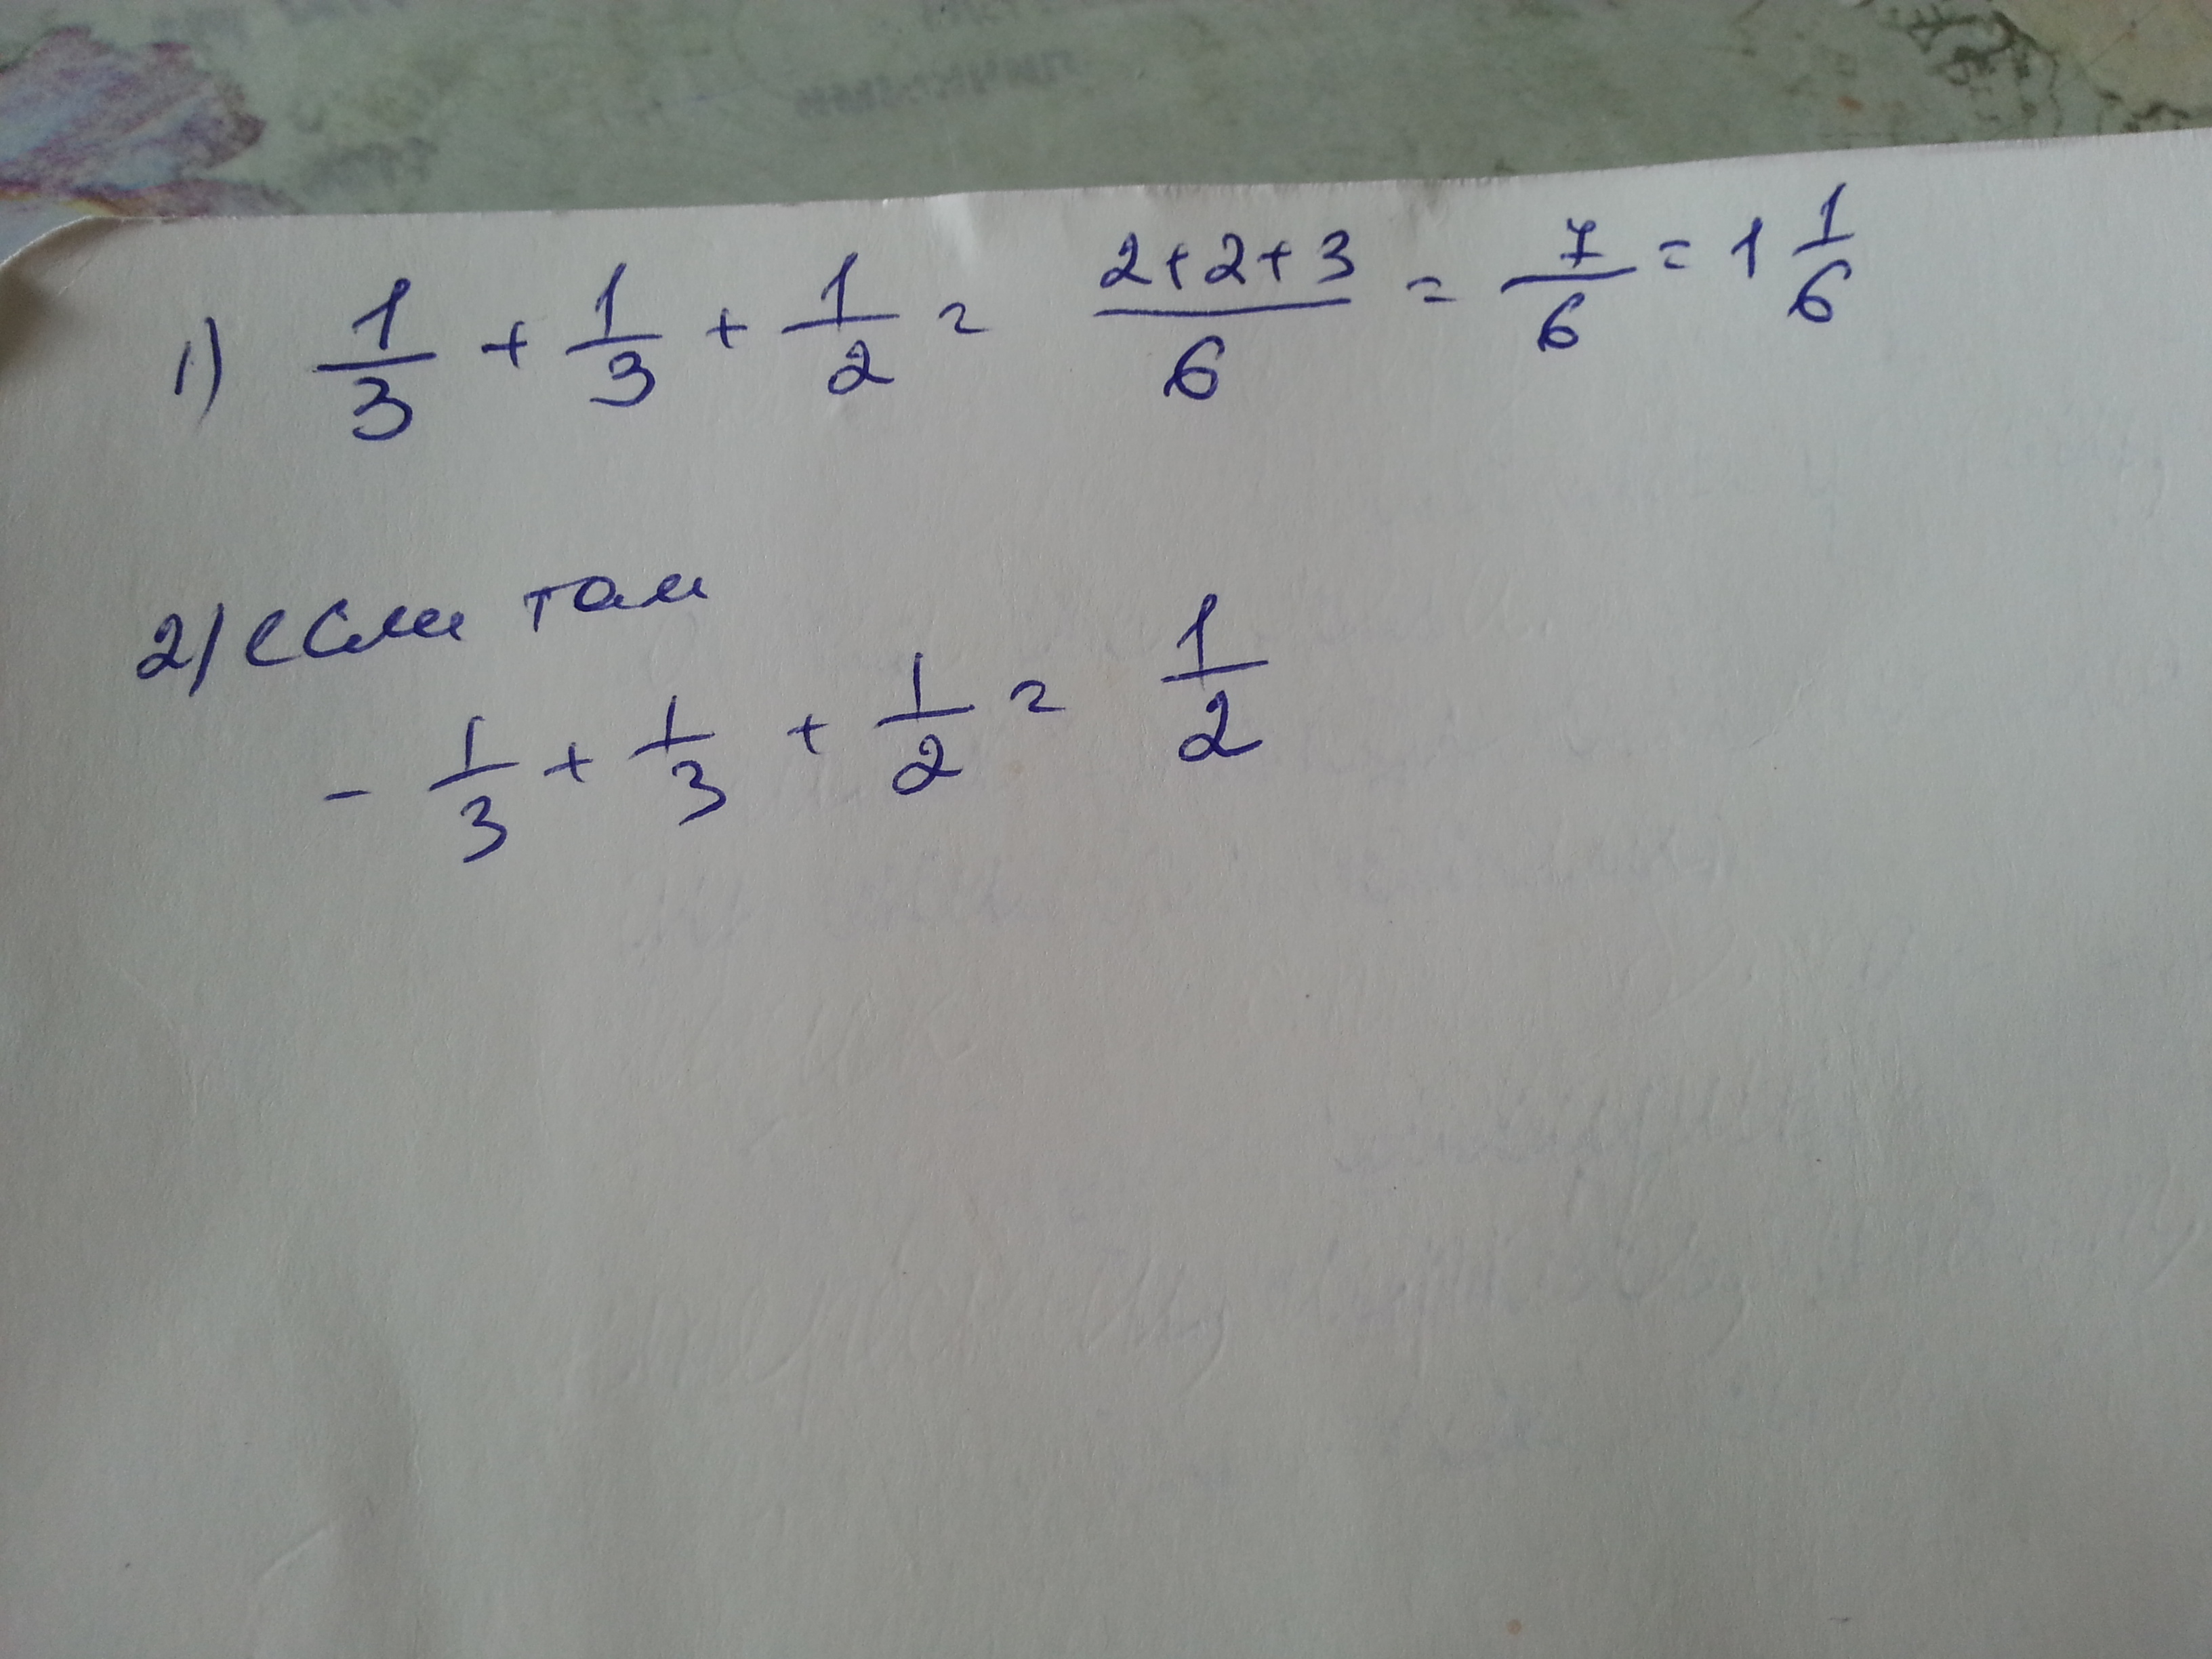 1) 1/3 + 1/3 + 1/2 = (2+2+3)/6 = 7/6 = 1 1/6
2) если там
- 1/3 + 1/3 + 1/2 = 1/2